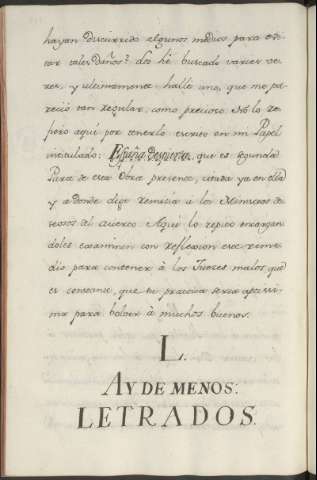 hayan discurrido algunos medios para evi-
tar tales daños? Los hé buscado varias ve-
zes, y ultimamente hallé uno, que me pa-
reció tan regular, como precioso. No lo re-
fiero aqui por tenerlo escrito en mi Papel
intitulado: España Despierta, que es segunda
Parte de esta Obra presente, citada ya en ella
y adonde dige remitia à los Ministros de-
seosos del acierto. Aqui lo repito encargan-
doles examinen con reflexion este reme-
dio para contener à los Juezes malos, que
es constante, que su practica sera aptissi-
ma para bolver à muchos buenos.
L.
AY DE MENOS:
LETRADOS.